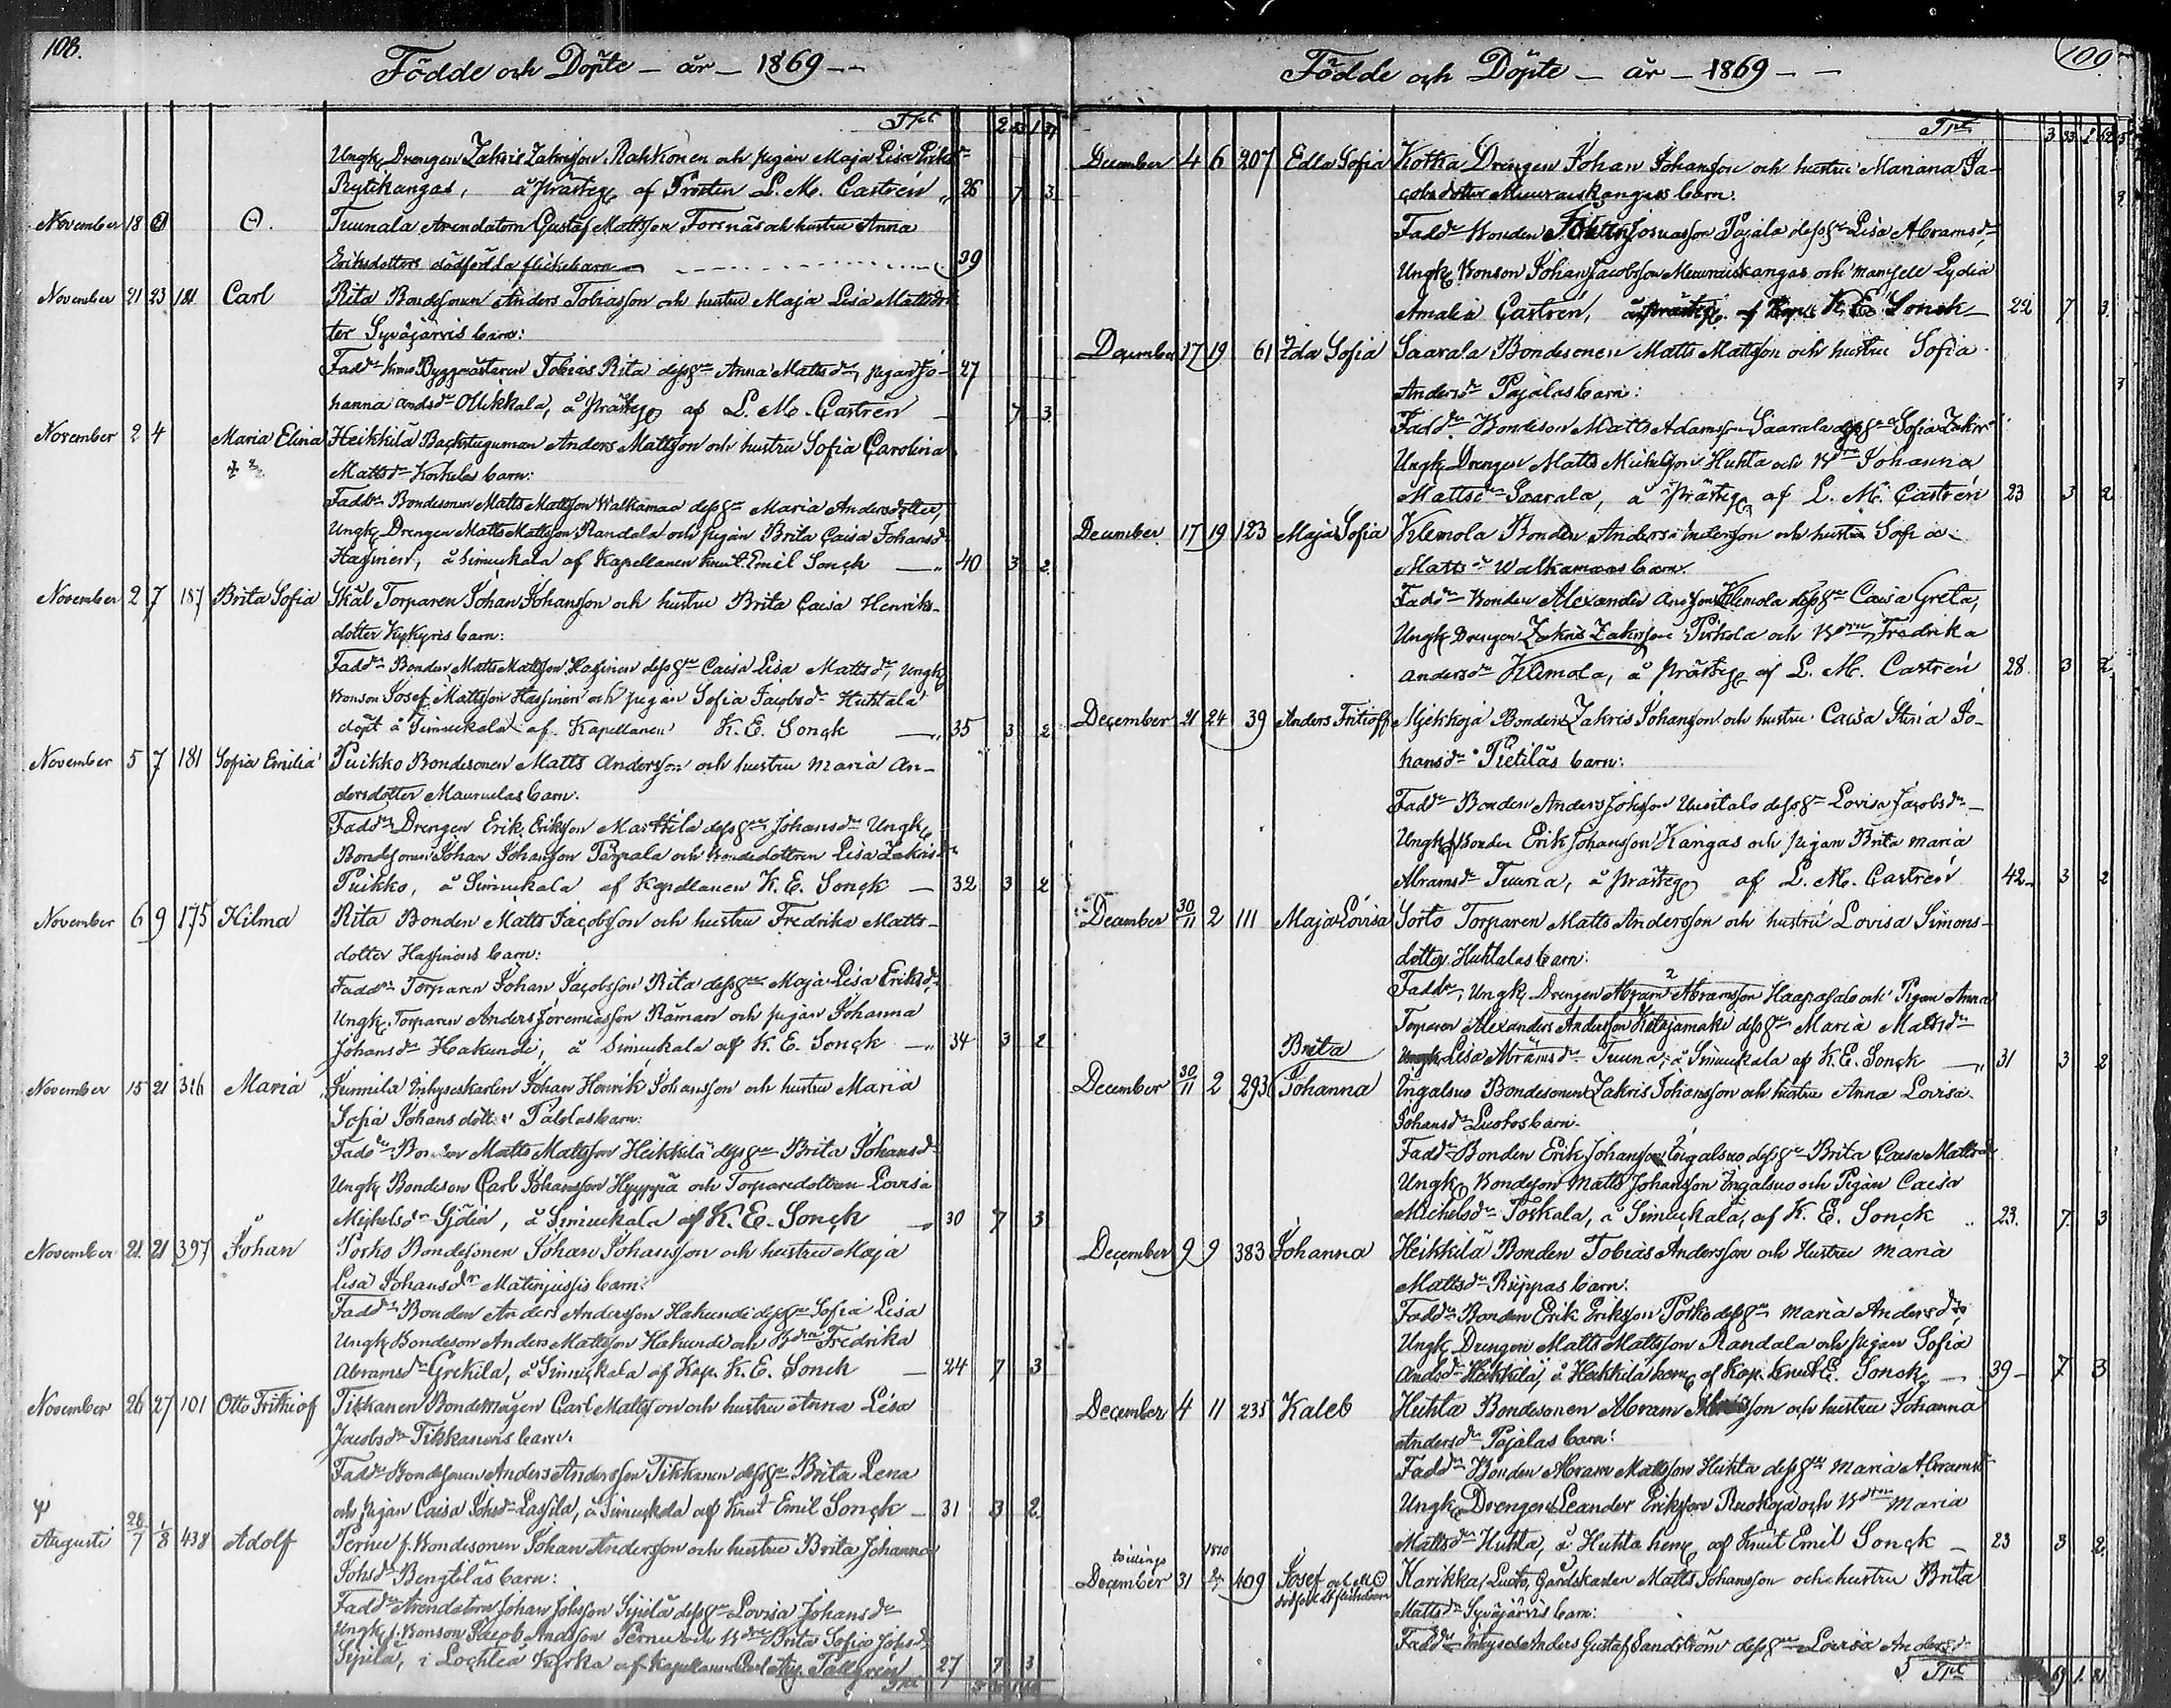 108.
Födde och Döpte - år - 1869 - -
Ungk. Drengen Zakris Zakrisson Rahkonen och pigan Maja Lisa
Rytikangas, å prästeg. af Prosten L. M. Castrén 26 7 3
November 18 Tuunala Arendatorn Gustaf Mattsson Forsnäs och hustru Anna
Eriksdotters dödfödda flickebarn 39
November 21 23 181 Carl Rita Bondesonen Anders Tobiasson och hustru Maja Lisa
ter Syväjärvis barn:
Fadd. Byggmästaren Tobias Rita dess h. Anna Matts dr, pigan Jo- 27
hanna Ands dr Ollikkala, å prästeg af L. M. Castrén 7 3
November 2 4 Maria Elina Heikkilä Backstuguman Anders Mattsson och hustru Sofia Carolina
Matts dr Korkelas barn:
Fadd. Bondesonen Matts Mattsson Walkamaa dess h. Maria Andersdotter,
Ungk. Drengen Matts Mattsson Randala och pigan Brita Caisa Johans dr
Hassinen, å Simuckala af Kapellanen Knut Emil Sonck 40 3 2
November 2 7 187 Brita Sofia Skål Torparen Johan Johansson och hustru Brita Caisa Henriks-
dotter Kykyris barn:
Fadd. Bonden Matts Mattsson Hassinen dess h. Caisa Lisa Matts dr, Ungk
Bonson Josef Mattsson Hassinen och pigan Sofia Jacobs dr Huhtala
döpt å Simuckala af Kapellanen K. E. Sonck 35 3 2
November 5 7 181 Sofia Emilia Puikko Bondesonen Matts Andersson och hustru Maria An-
dersdotter Maunulas barn.
Fadd. Drengen Erik Eriksson Marttila dess h. Johans dr Ungk.
Bondesonen Johan Johansson Parpala och bondedottren Lisa Zakris dr
Puikko, å Simuckala af Kapellanen K. E. Sonck 32 3 2
November 6 9 175 Hilma Rita Bonden Matts Jacobsson och hustru Fredrika Matts-
dotter Hassinens barn:
Fadd. Torparen Johan Jacobsson Rita dess h. Maja Lisa Eriks dr
Ungk. Torparen Anders Joremiasson Råman och pigan Johanna
Johans dr Hakundi, å Simuckala af K. E. Sonck 34 3 2
November 15 21 316 Maria Junnila Inhyseskarlen Johan Henrik Johansson och hustru Maria
Sofia Johans dotter Palolas barn:
Fadd. Bonden Matts Mattsson Heikkilä dess h. Brita Johans dr
Ungk. Bondeson Carl Johansson Hyyppiä och Torparedottren Lovisa
Michels dr Sjödin, å Simuckala af K. E. Sonck 30 7 3
November 21 21 397 Johan Porko Bondesonen Johan Johansson och hustru Maja
Lisa Johans dr Matinjussis barn:
Fadd. Bonden Anders Andersson Hakundi dess h. Sofia Lisa
Ungk. Bondeson Anders Mattsson Hakundi och B dren Fredrika
Abrams dr Grekila, å Simuckala af Kap. K. E. Sonck 24 7 3
November 26 27 101 Otto Frithiof Tikkanen Bondemågen Carl Mattsson och hustru Anna Lisa
Jacobs dr Tikkanens barn.
Fadd. Bondesonen Anders Andersson Tikkanen dess h. Brita Lena
och pigan Caisa Johs dr Lassila, å Simuckala af Knut Emil Sonck 31 3 2
Augusti 28/7 1/8 438 Adolf Pernu f. Bondesonen Johan Andersson och hustru Brita Johanna
Johs dr Bengtiläs barn:
Fadd. Arendatorn Johan Johsson Sipilä dess h. Lovisa Johans dr
Ungk. f. Bonson Jacob Andsson Pernu och B dre Brita Sofia Johs dr
Sipilä, i Lochteå kyrka af Kapellanen Carl Aug. Pallgren 27 7 3
109
Födde och Döpte - år - 1869 - -
Trpt 3 33 1 62
December 4 6 207 Edla Sofia Kotka Drengen Johan Johansson och hustru Mariana Ja-
cobsdotter Muuraiskangas barn:
Fadd. Bonden Josuasson Pajala dess h. Lisa Abrams dr
Ungk. Bonson Johan Jacobsson Muuraiskangas och Mamsell Lydia
Amalia Castrén, å prästeg. af Kapel. K. E. Sonck 22 7 3
December 17 19 61 Ida Sofia Saarala Bondesonen Matts Mattsson och hustru Sofia
Anders dr Pajalas barn:
Fadd. Bondeson Matts Adamsson Saarala dess h. Sofia Zakris
Ungk. Drengen Matts Michelsson Huhta och B dren Johanna
Matts dr Saarala, å prästeg af L. M. Castrén 23 3 2
December 17 19 123 Maja Sofia Klemola Bonden Anders Andersson och hustru Sofia
Matts dr Walkamaas barn.
Fadd. Bonden Alexander Andsson Klemola dess h. Caisa Greta,
Ungk. Drengen Zakris Zakrisson Pirkola och B dren Fredrika
Anders dr Klemola, å prästeg af L. M. Castrén 28 3 2
December 21 24 39 Anders Fritioff Mjekkoja Bonden Zakris Johansson och hustru Caisa Stina Jo-
hans dr Pietiläs barn:
Fadd. Bonden Anders Johsson Uusitalo dess h. Lovisa Jacobs dr
Ungk. Bonden Erik Johansson Kangas och pigan Brita Maria
Abrams dr Tuura, å prästeg af L. M. Castrén 42 3 2
December 30/11 2 111 Maja Lovisa Sorto Torparen Matts Andersson och hustru Lovisa Simons-
dotter Huhtalas barn:
Fadd. Ungk. Drengen Abram Abramsson Haapasalo och Pigan Anna
Torparen Alexander Andersson Katajamäki dess h. Maria Matts dr
Lisa Abrams dr Tuuna, å Simuckala af K. E. Sonck 31 3 2
December 30/11 2 293 Brita Johanna Ingalsuo Bondesonen Zakris Johansson och hustru Anna Lovisa
Johans dr Luotos barn.
Fadd. Bonden Erik Johansson Ingalsuo dess h. Brita Caisa Matts dr
Ungk. Bondeson Matts Johansson Ingalsuo och Pigan Caisa
Michels dr Poskala, å Simuckala, af K. E. Sonck 23 7 3
December 9 9 383 Johanna Heikkilä Bonden Tobias Andersson och Hustru Maria
Matts dr Ruppas barn:
Fadd. Bonden Erik Eriksson Porko dess h. Maria Anders dr
Ungk. Drengen Matts Mattsson Randala och pigan Sofia
Ands dr Heikkilä, å Heikkilä hem. af Kap. Knut E. Sonck 39 7 3
December 4 11 235 Kaleb Huhta Bondesonen Abram son och hustru Johanna
Anders dr Pajalas barn:
Fadd. Bonden Abram Mattsson Huhta dess h. Maria Abrams dr
Ungk. Drengen Leander Eriksson Ruokoja och B dren Maria
Matts dr Huhta, å Huhta hem. af Knut Emil Sonck 23 3 2
tvillings 1870
December 31 409 Josef och ett Karikka, Luoto, Gårdskarlen Matts Johansson och hustru Brita
dödfödt flickebarn Matts dr Syväjärvis barn:
Fadd. Inhyses Anders Gustaf Sandström dess h. Lovisa Anders dr
Trpt 69 1 81